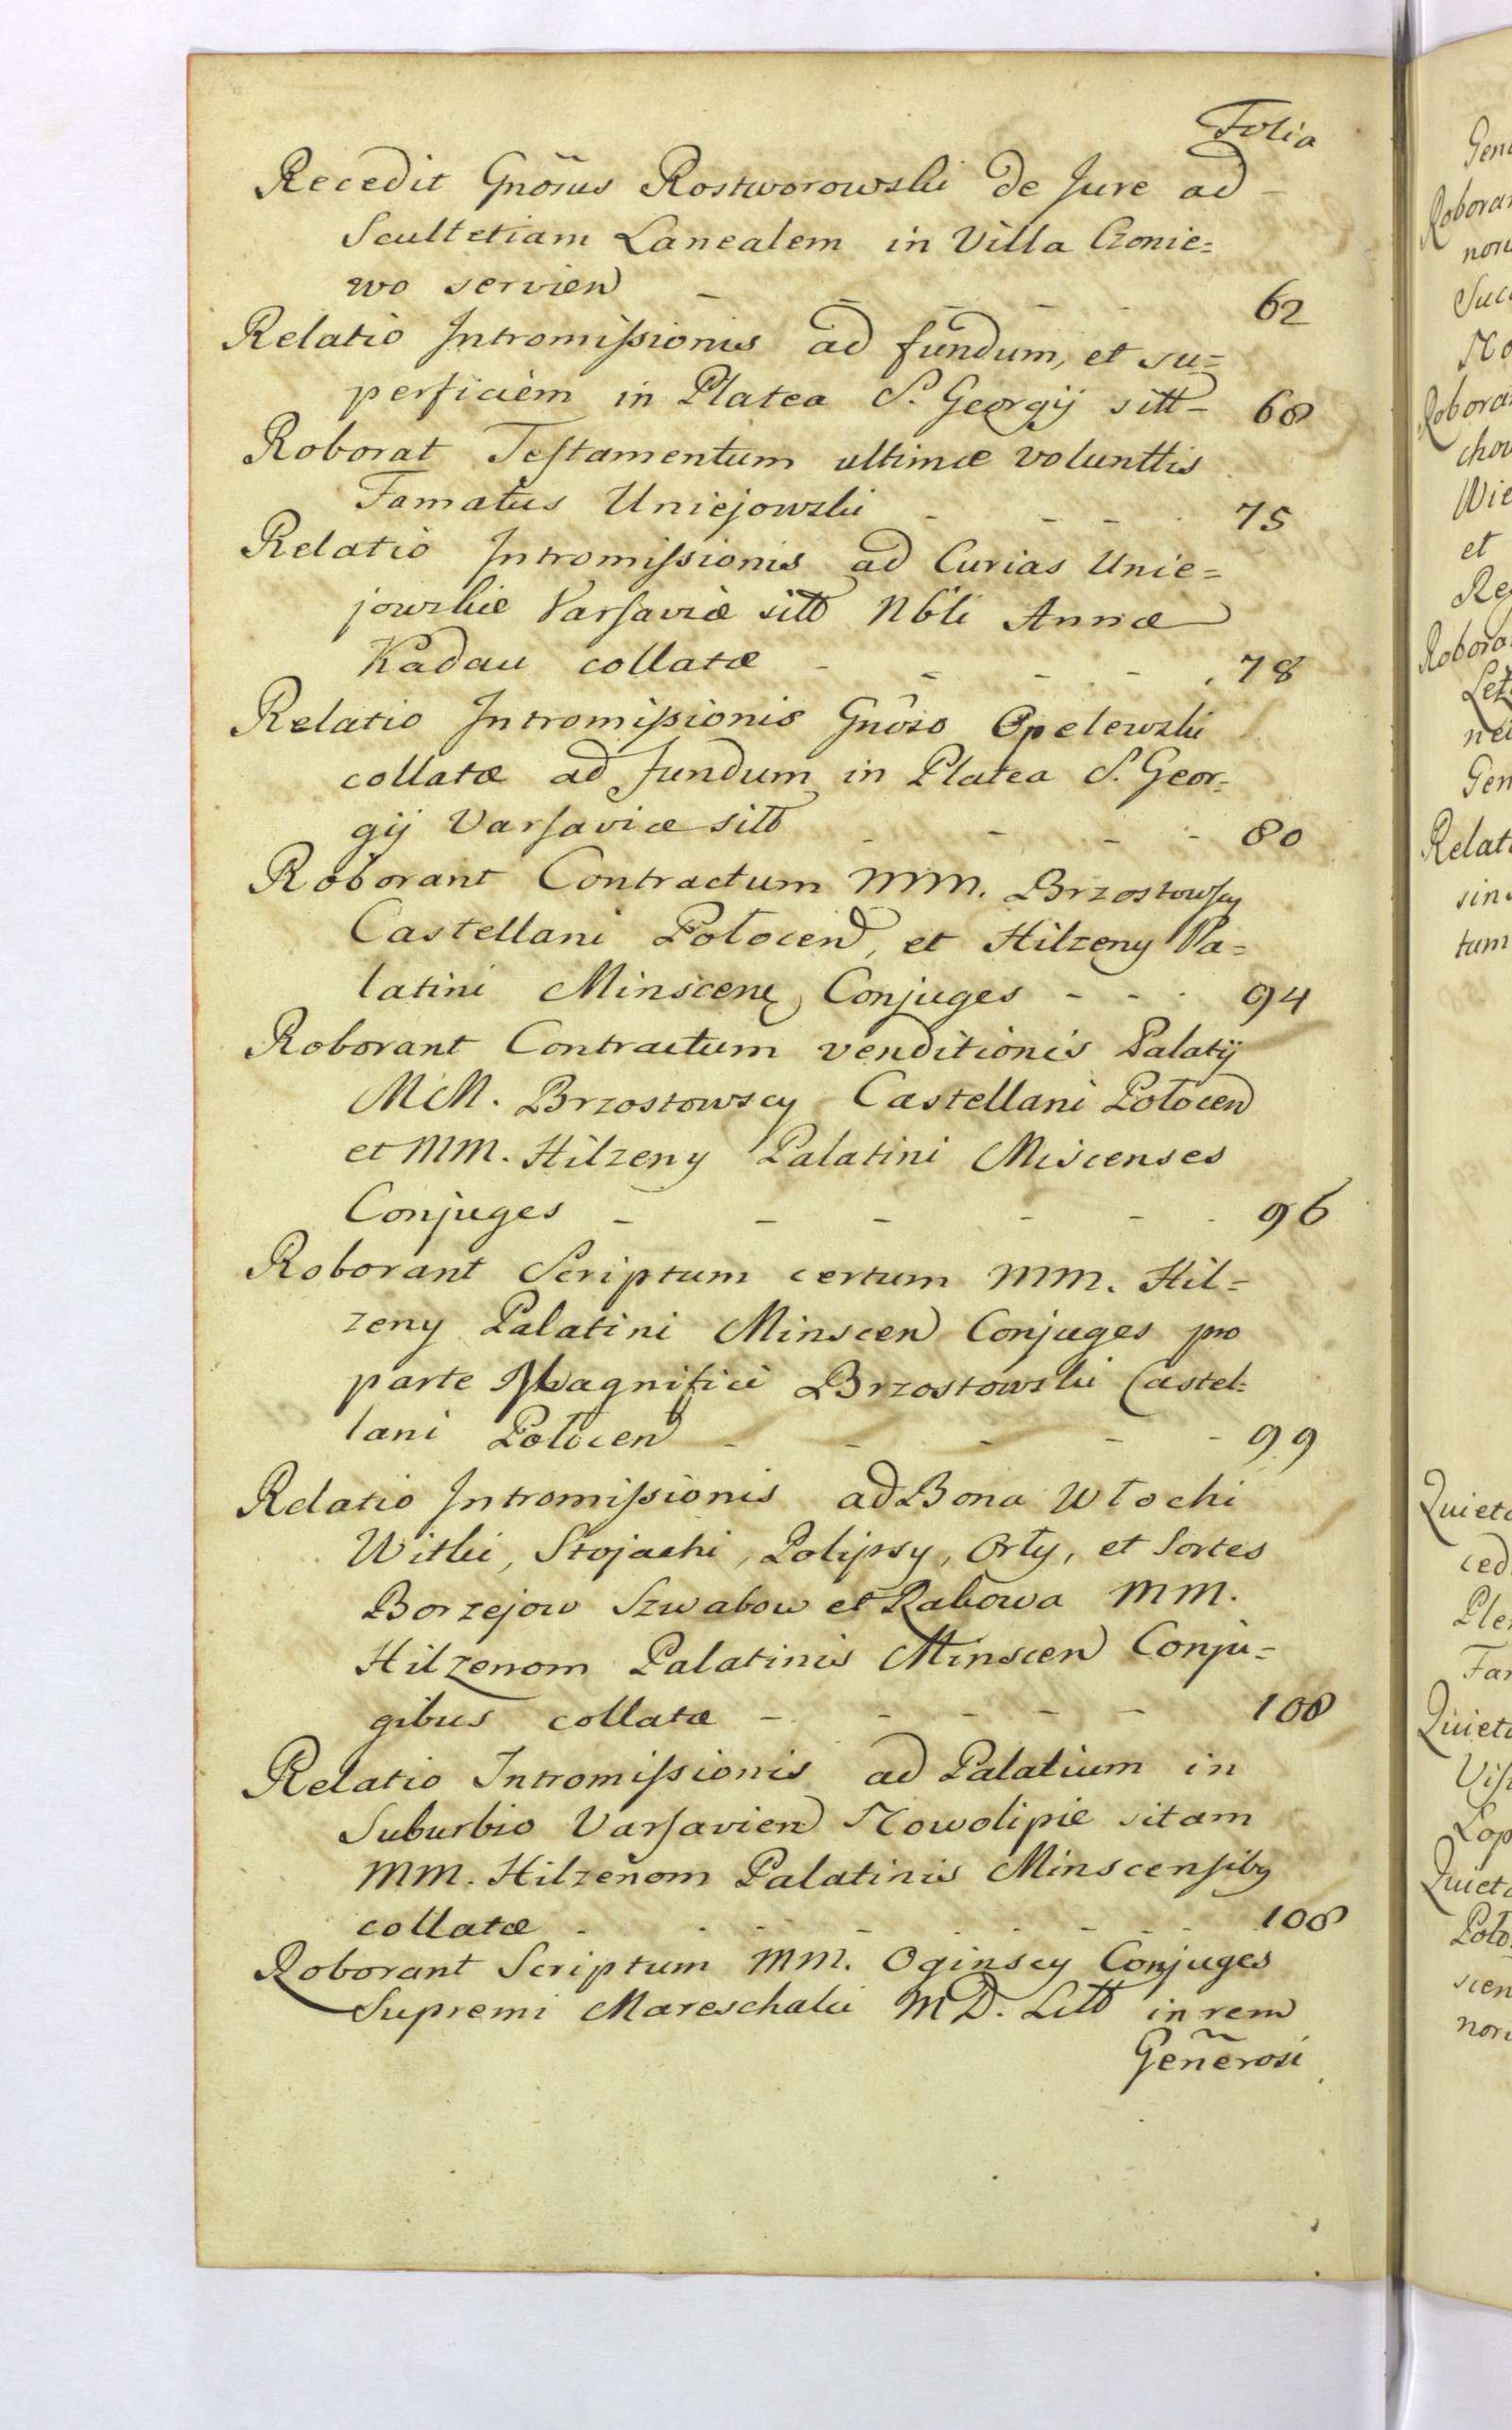 Folia
Recedit Gnõsus Rostworowski de Jure ad -
Scultetiam Lanealem in Villa Czonie=
wo servien - - - - - 62
Relatio Intromissionis ad fundum, et su=
perficiem in Platea S. Georgij sitt - 68
Roborat Testamentum ultimæ volunttis
Famatus Uniejowski - - - 75
Relatio Intromissionis ad Curias Unie=
jowskie Varsaviæ sitt Nbli Annæ
Kadau collatæ - - - - 78
Relatio Intromissionis Gnõso Opelewski
collatæ ad fundum in Platea S. Geor=
gij Varsaviæ sitt - - - - 80
Roborant Contractum MM. Brzostowscy
Castellani Połocen, et Hilzeny Pa=
latini Minscen Conjuges - - - 94
Roborant Contractum venditionis Palatij
MM. Brzostowscy Castellani Połocen
et MM. Hilzeny Palatini Miscenses
Conjuges - - - - - 96
Roborant Scriptum certum MM. Hil=
zeny Palatini Minscen Conjuges pro
parte Magnifici Brzostowski Castel=
lani Połocen - - - - - 99
Relatio Intromissionis ad Bona Włochi
Witki, Stojachi, Polipsy, Orły, et Sortes
Borzejow Szwabow et Rakowa MM.
Hilzenom Palatinis Minscen Conju=
gibus collatæ - - - - - 108
Relatio Intromissionis ad Palatium in
Suburbio Varsavien Nowolipie sitam
MM. Hilzenom Palatinis Minscensibg
collatæ - - - - - - 108
Roborant Scriptum MM. Oginscy Conjuges
Supremi Mareschalii M D. Litt in rem
Geñerosi